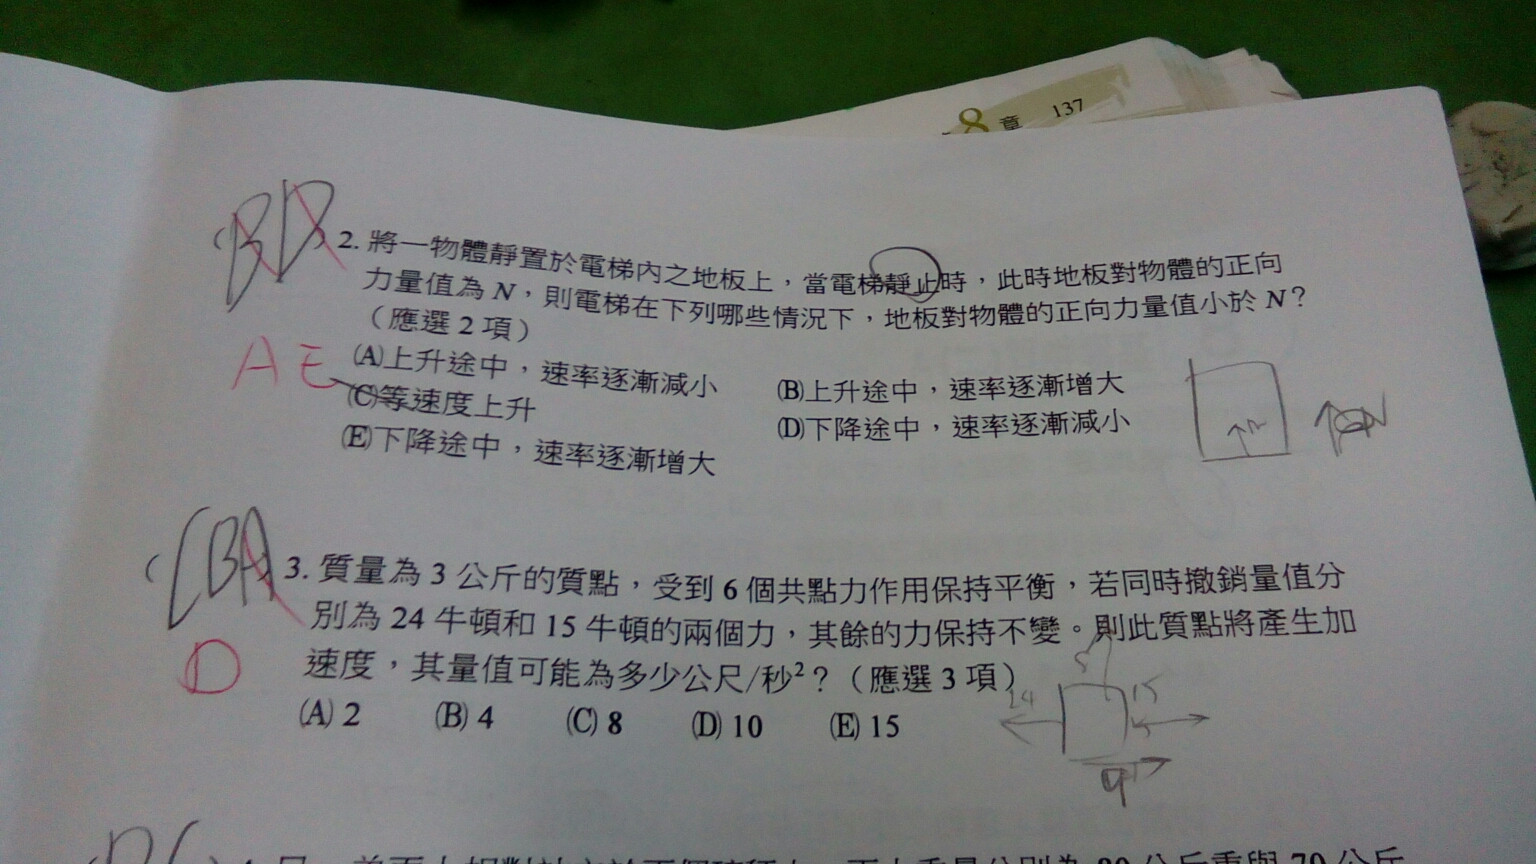 8 章 137
BD
2. 將一物體靜置於電梯內之地板上，當電梯靜止時，此時地板對物體的正向
力量值為 N，則電梯在下列哪些情況下，地板對物體的正向力量值小於 N？
（應選 2 項）
AE
(A)上升途中，速率逐漸減小 (B)上升途中，速率逐漸增大
(C)等速度上升 (D)下降途中，速率逐漸減小
(E)下降途中，速率逐漸增大
N
3. 質量為 3 公斤的質點，受到 6 個共點力作用保持平衡，若同時撤銷量值分
別為 24 牛頓和 15 牛頓的兩個力，其餘的力保持不變。則此質點將產生加
速度，其量值可能為多少公尺/秒²？（應選 3 項）
D
(A) 2 (B) 4 (C) 8 (D) 10 (E) 15
24 15